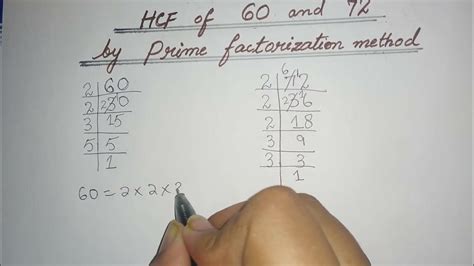 HCF of 60 and 72
by Prime factorization method
2 60
2 30
3 15
5 5
1
2 72
2 36
2 18
3 9
3 3
1
60 = 2 × 2 × 3